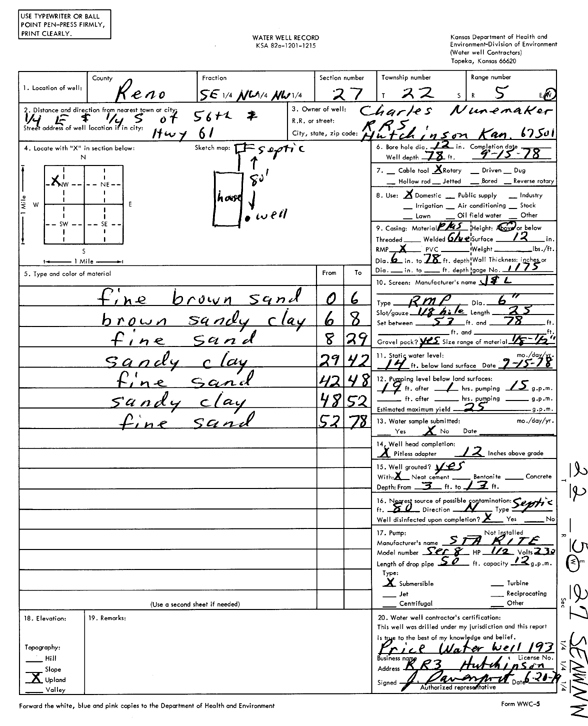 USE TYPEWRITER OR BALL
POINT PEN-PRESS FIRMLY,
PRINT CLEARLY.
WATER WELL RECORD
KSA 82a-1201-1215
Kansas Department of Health and
Environment-Division of Environment
(Water well Contractors)
Topeka, Kansas 66620
1. Location of well: County Reno Fraction SE 1/4 NW 1/4 NW 1/4 Section number 27 Township number T 22 S Range number R 5 E/W
2. Distance and direction from nearest town or city: 1/4 E & 1/4 S of 56th &
Street address of well location if in city: Hwy 61
3. Owner of well: Charles Nunemaker
R.R. or street: RR5
City, state, zip code: Hutchinson Kan. 67501
4. Locate with "X" in section below:
N
X NW NE
W E
SW SE
S
1 Mile
1 Mile
Sketch map:
septic
80'
house
well
6. Bore hole dia. 12 in. Completion date
Well depth 78 ft. 9-15-78
7. Cable tool X Rotary Driven Dug
Hollow rod Jetted Bored Reverse rotary
8. Use: X Domestic Public supply Industry
Irrigation Air conditioning Stock
Lawn Oil field water Other
9. Casing: Material Height: Above or below
Threaded Welded Glue Surface 12 in.
RMP X PVC Weight lbs./ft.
Dia. 6 in. to 78 ft. depth Wall Thickness: inches or
Dia. in. to ft. depth gage No. 1175
5. Type and color of material From To
fine brown sand 0 6
brown sandy clay 6 8
fine sand 8 29
sandy clay 29 42
fine sand 42 48
sandy clay 48 52
fine sand 52 78
(Use a second sheet if needed)
10. Screen: Manufacturer's name
Type RMP Dia. 6"
Slot/gauze 1/8 hole Length 25
Set between 53 ft. and 78 ft.
ft. and ft.
Gravel pack? yes Size range of material 1/8-1/2"
11. Static water level: mo./day/yr.
14 ft. below land surface Date 9-15-78
12. Pumping level below land surfaces:
19 ft. after 1 hrs. pumping 15 g.p.m.
ft. after hrs. pumping g.p.m.
Estimated maximum yield 25 g.p.m.
13. Water sample submitted: mo./day/yr.
Yes X No Date
14. Well head completion:
X Pitless adapter 12 Inches above grade
15. Well grouted? yes
With: X Neat cement Bentonite Concrete
Depth: From 3 ft. to 13 ft.
16. Nearest source of possible contamination: Septic
ft. 80 Direction N Type
Well disinfected upon completion? X Yes No
17. Pump: Not installed
Manufacturer's name STA RITE
Model number Ser 8 HP 1/2 Volts 230
Length of drop pipe 50 ft. capacity 12 g.p.m.
Type:
X Submersible Turbine
Jet Reciprocating
Centrifugal Other
18. Elevation:
Topography:
Hill
Slope
X Upland
Valley
19. Remarks:
20. Water well contractor's certification:
This well was drilled under my jurisdiction and this report
is true to the best of my knowledge and belief.
Price Water Well 193
Business name License No.
Address RR3 Hutchinson
Signed J Davenport Date 6-20-79
Authorized representative
Forward the white, blue and pink copies to the Department of Health and Environment
Form WWC-5
T 22 R 5 W Sec 27 1/4 1/4 1/4 SE NW NW